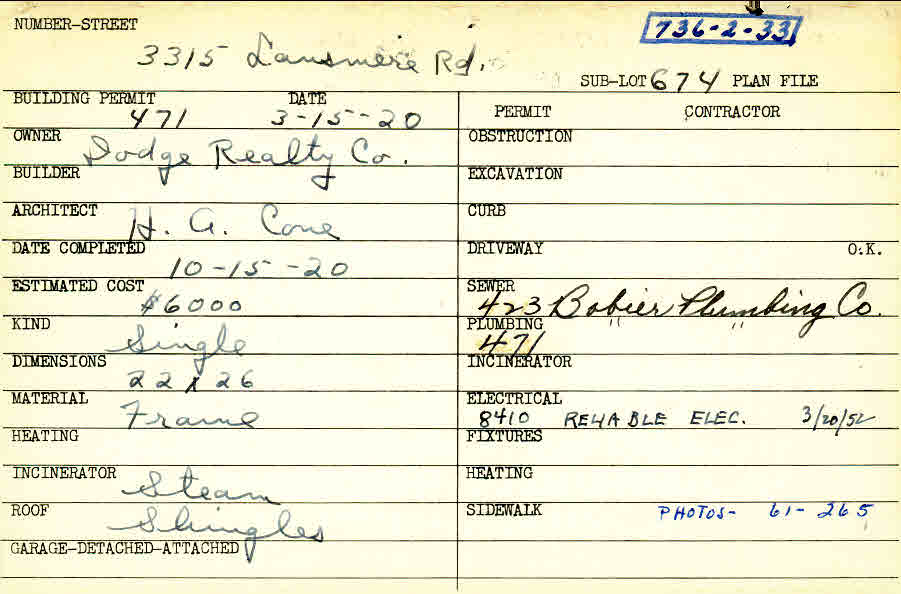 NUMBER-STREET
736-2-33
3315 Lansmere Rd.
SUB-LOT 674 PLAN FILE
BUILDING PERMIT DATE
471 3-15-20
OWNER
Dodge Realty Co.
BUILDER
ARCHITECT
H. G. Cone
DATE COMPLETED
10-15-20
ESTIMATED COST
$6000
KIND
Single
DIMENSIONS
22 x 26
MATERIAL
Frame
HEATING
INCINERATOR
Steam
ROOF
Shingles
GARAGE-DETACHED-ATTACHED
PERMIT CONTRACTOR
OBSTRUCTION
EXCAVATION
CURB
DRIVEWAY O.K.
SEWER
423 Bobier Plumbing Co.
PLUMBING
471 " "
INCINERATOR
ELECTRICAL
8410 RELIABLE ELEC. 3/20/52
FIXTURES
HEATING
SIDEWALK
PHOTOS- 61-265